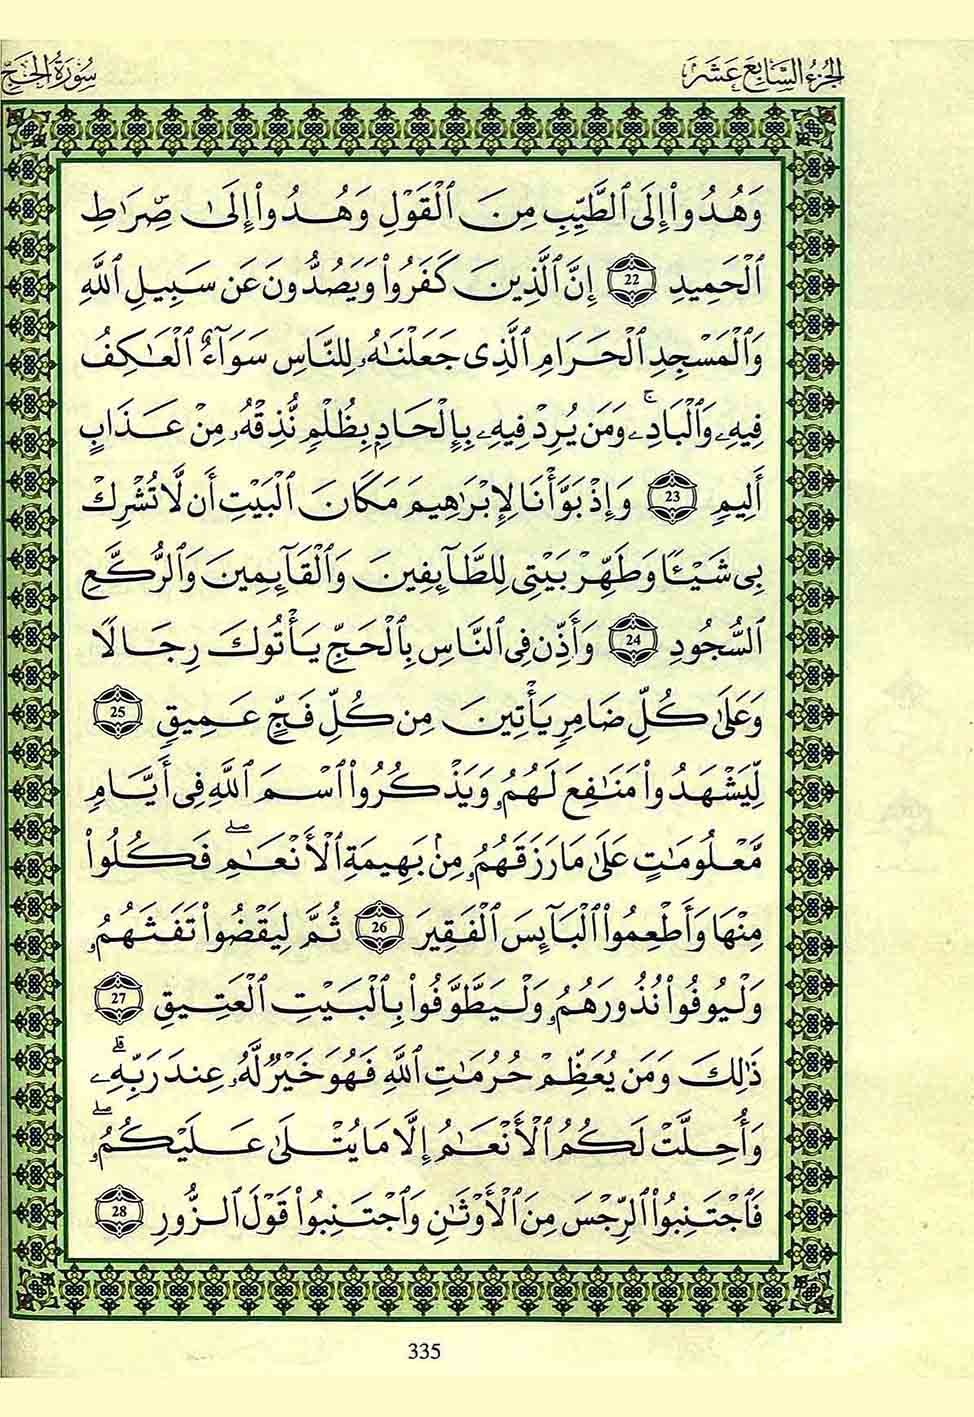 الجزء السابع عشر
سورة الحج
وَهُدُوٓاْ إِلَى ٱلطَّيِّبِ مِنَ ٱلْقَوْلِ وَهُدُوٓاْ إِلَىٰ صِرَٰطِ
ٱلْحَمِيدِ 22 إِنَّ ٱلَّذِينَ كَفَرُواْ وَيَصُدُّونَ عَن سَبِيلِ ٱللَّهِ
وَٱلْمَسْجِدِ ٱلْحَرَامِ ٱلَّذِى جَعَلْنَٰهُ لِلنَّاسِ سَوَآءٌ ٱلْعَٰكِفُ
فِيهِۦ وَٱلْبَادِۦۚ وَمَن يُرِدْ فِيهِۦ بِإِلْحَادِۭ بِظُلْمٍ نُّذِقْهُۥ مِنْ عَذَابٍ
أَلِيمٍ 23 وَإِذْ بَوَّأْنَا لِإِبْرَٰهِيمَ مَكَانَ ٱلْبَيْتِ أَن لَّا تُشْرِكْ
بِى شَيْـًٔا وَطَهِّرْ بَيْتِى لِلطَّآئِفِينَ وَٱلْقَآئِمِينَ وَٱلرُّكَّعِ
ٱلسُّجُودِ 24 وَأَذِّن فِى ٱلنَّاسِ بِٱلْحَجِّ يَأْتُوكَ رِجَالًا
وَعَلَىٰ كُلِّ ضَامِرٍ يَأْتِينَ مِن كُلِّ فَجٍّ عَمِيقٍ 25
لِّيَشْهَدُواْ مَنَٰفِعَ لَهُمُۥ وَيَذْكُرُواْ ٱسْمَ ٱللَّهِ فِى أَيَّامٍ
مَّعْلُومَٰتٍ عَلَىٰ مَا رَزَقَهُمُۥ مِنۢ بَهِيمَةِ ٱلْأَنْعَٰمِۖ فَكُلُواْ
مِنْهَا وَأَطْعِمُواْ ٱلْبَآئِسَ ٱلْفَقِيرَ 26 ثُمَّ لِيَقْضُواْ تَفَثَهُمُۥ
وَلْيُوفُواْ نُذُورَهُمُۥ وَلْيَطَّوَّفُواْ بِٱلْبَيْتِ ٱلْعَتِيقِ 27
ذَٰلِكَ وَمَن يُعَظِّمْ حُرُمَٰتِ ٱللَّهِ فَهُوَ خَيْرٌ لَّهُۥ عِندَ رَبِّهِۦۗ
وَأُحِلَّتْ لَكُمُ ٱلْأَنْعَٰمُ إِلَّا مَا يُتْلَىٰ عَلَيْكُمُۥۖ
فَٱجْتَنِبُواْ ٱلرِّجْسَ مِنَ ٱلْأَوْثَٰنِ وَٱجْتَنِبُواْ قَوْلَ ٱلزُّورِ 28
335